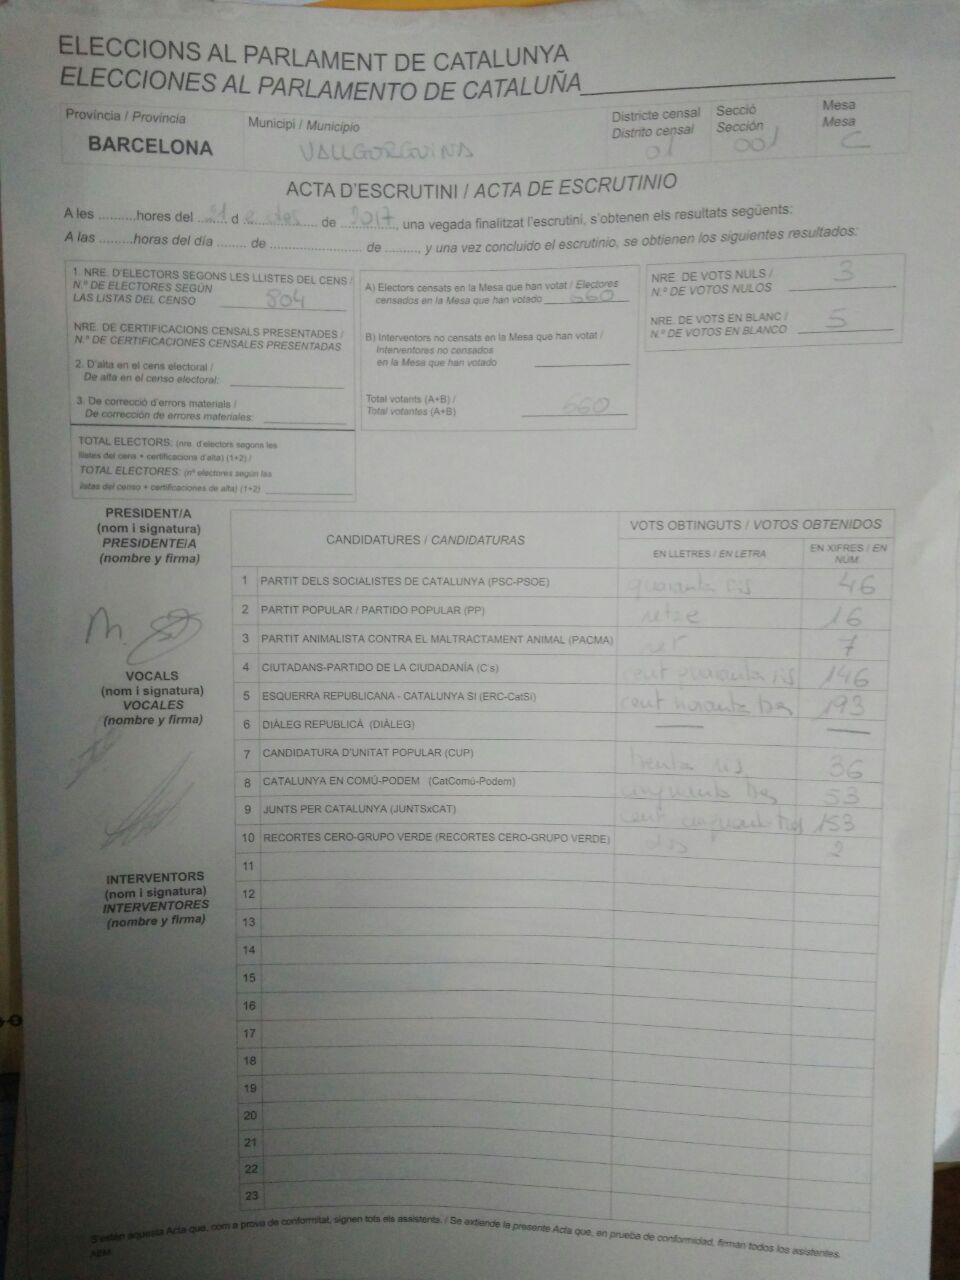 ELECCIONS AL PARLAMENT DE CATALUNYA
ELECCIONES AL PARLAMENTO DE CATALUÑA
Província / Provincia
BARCELONA
Municipi / Municipio
VALLGORGUINA
Districte censal
Distrito censal
01
Secció
Sección
001
Mesa
Mesa
C
ACTA D'ESCRUTINI / ACTA DE ESCRUTINIO
A les ..........hores del 21 d de 2017, una vegada finalitzat l'escrutini, s'obtenen els resultats següents:
A las .........horas del día ........ de ........................ de ........., y una vez concluido el escrutinio, se obtienen los siguientes resultados:
1. NRE. D'ELECTORS SEGONS LES LLISTES DEL CENS /
N.º DE ELECTORES SEGÚN
LAS LISTAS DEL CENSO 804
NRE. DE CERTIFICACIONS CENSALS PRESENTADES /
N.º DE CERTIFICACIONES CENSALES PRESENTADAS
2. D'alta en el cens electoral /
De alta en el censo electoral:
3. De correcció d'errors materials /
De corrección de errores materiales:
TOTAL ELECTORS: (nre. d'electors segons les
llistes del cens + certificacions d'alta) (1+2) /
TOTAL ELECTORES: (nº electores según las
listas del censo + certificaciones de alta) (1+2)
A) Electors censats en la Mesa que han votat / Electores
censados en la Mesa que han votado 660
B) Interventors no censats en la Mesa que han votat /
Interventores no censados
en la Mesa que han votado
Total votants (A+B) /
Total votantes (A+B) 660
NRE. DE VOTS NULS /
N.º DE VOTOS NULOS 3
NRE. DE VOTS EN BLANC /
N.º DE VOTOS EN BLANCO 5
PRESIDENT/A
(nom i signatura)
PRESIDENTE/A
(nombre y firma)
VOCALS
(nom i signatura)
VOCALES
(nombre y firma)
INTERVENTORS
(nom i signatura)
INTERVENTORES
(nombre y firma)
CANDIDATURES / CANDIDATURAS
VOTS OBTINGUTS / VOTOS OBTENIDOS
EN LLETRES / EN LETRA
EN XIFRES / EN NÚM.
1 PARTIT DELS SOCIALISTES DE CATALUNYA (PSC-PSOE) quaranta sis 46
2 PARTIT POPULAR / PARTIDO POPULAR (PP) setze 16
3 PARTIT ANIMALISTA CONTRA EL MALTRACTAMENT ANIMAL (PACMA) set 7
4 CIUTADANS-PARTIDO DE LA CIUDADANÍA (C's) cent quaranta sis 146
5 ESQUERRA REPUBLICANA - CATALUNYA SI (ERC-CatSí) cent noranta tres 193
6 DIÀLEG REPUBLICÀ (DIÀLEG)
7 CANDIDATURA D'UNITAT POPULAR (CUP) trenta sis 36
8 CATALUNYA EN COMÚ-PODEM (CatComú-Podem) cinquanta tres 53
9 JUNTS PER CATALUNYA (JUNTSxCAT) cent cinquanta tres 153
10 RECORTES CERO-GRUPO VERDE (RECORTES CERO-GRUPO VERDE) dos 2
11
12
13
14
15
16
17
18
19
20
21
22
23
S'estén aquesta Acta que, com a prova de conformitat, signen tots els assistents. / Se extiende la presente Acta que, en prueba de conformidad, firman todos los asistentes.